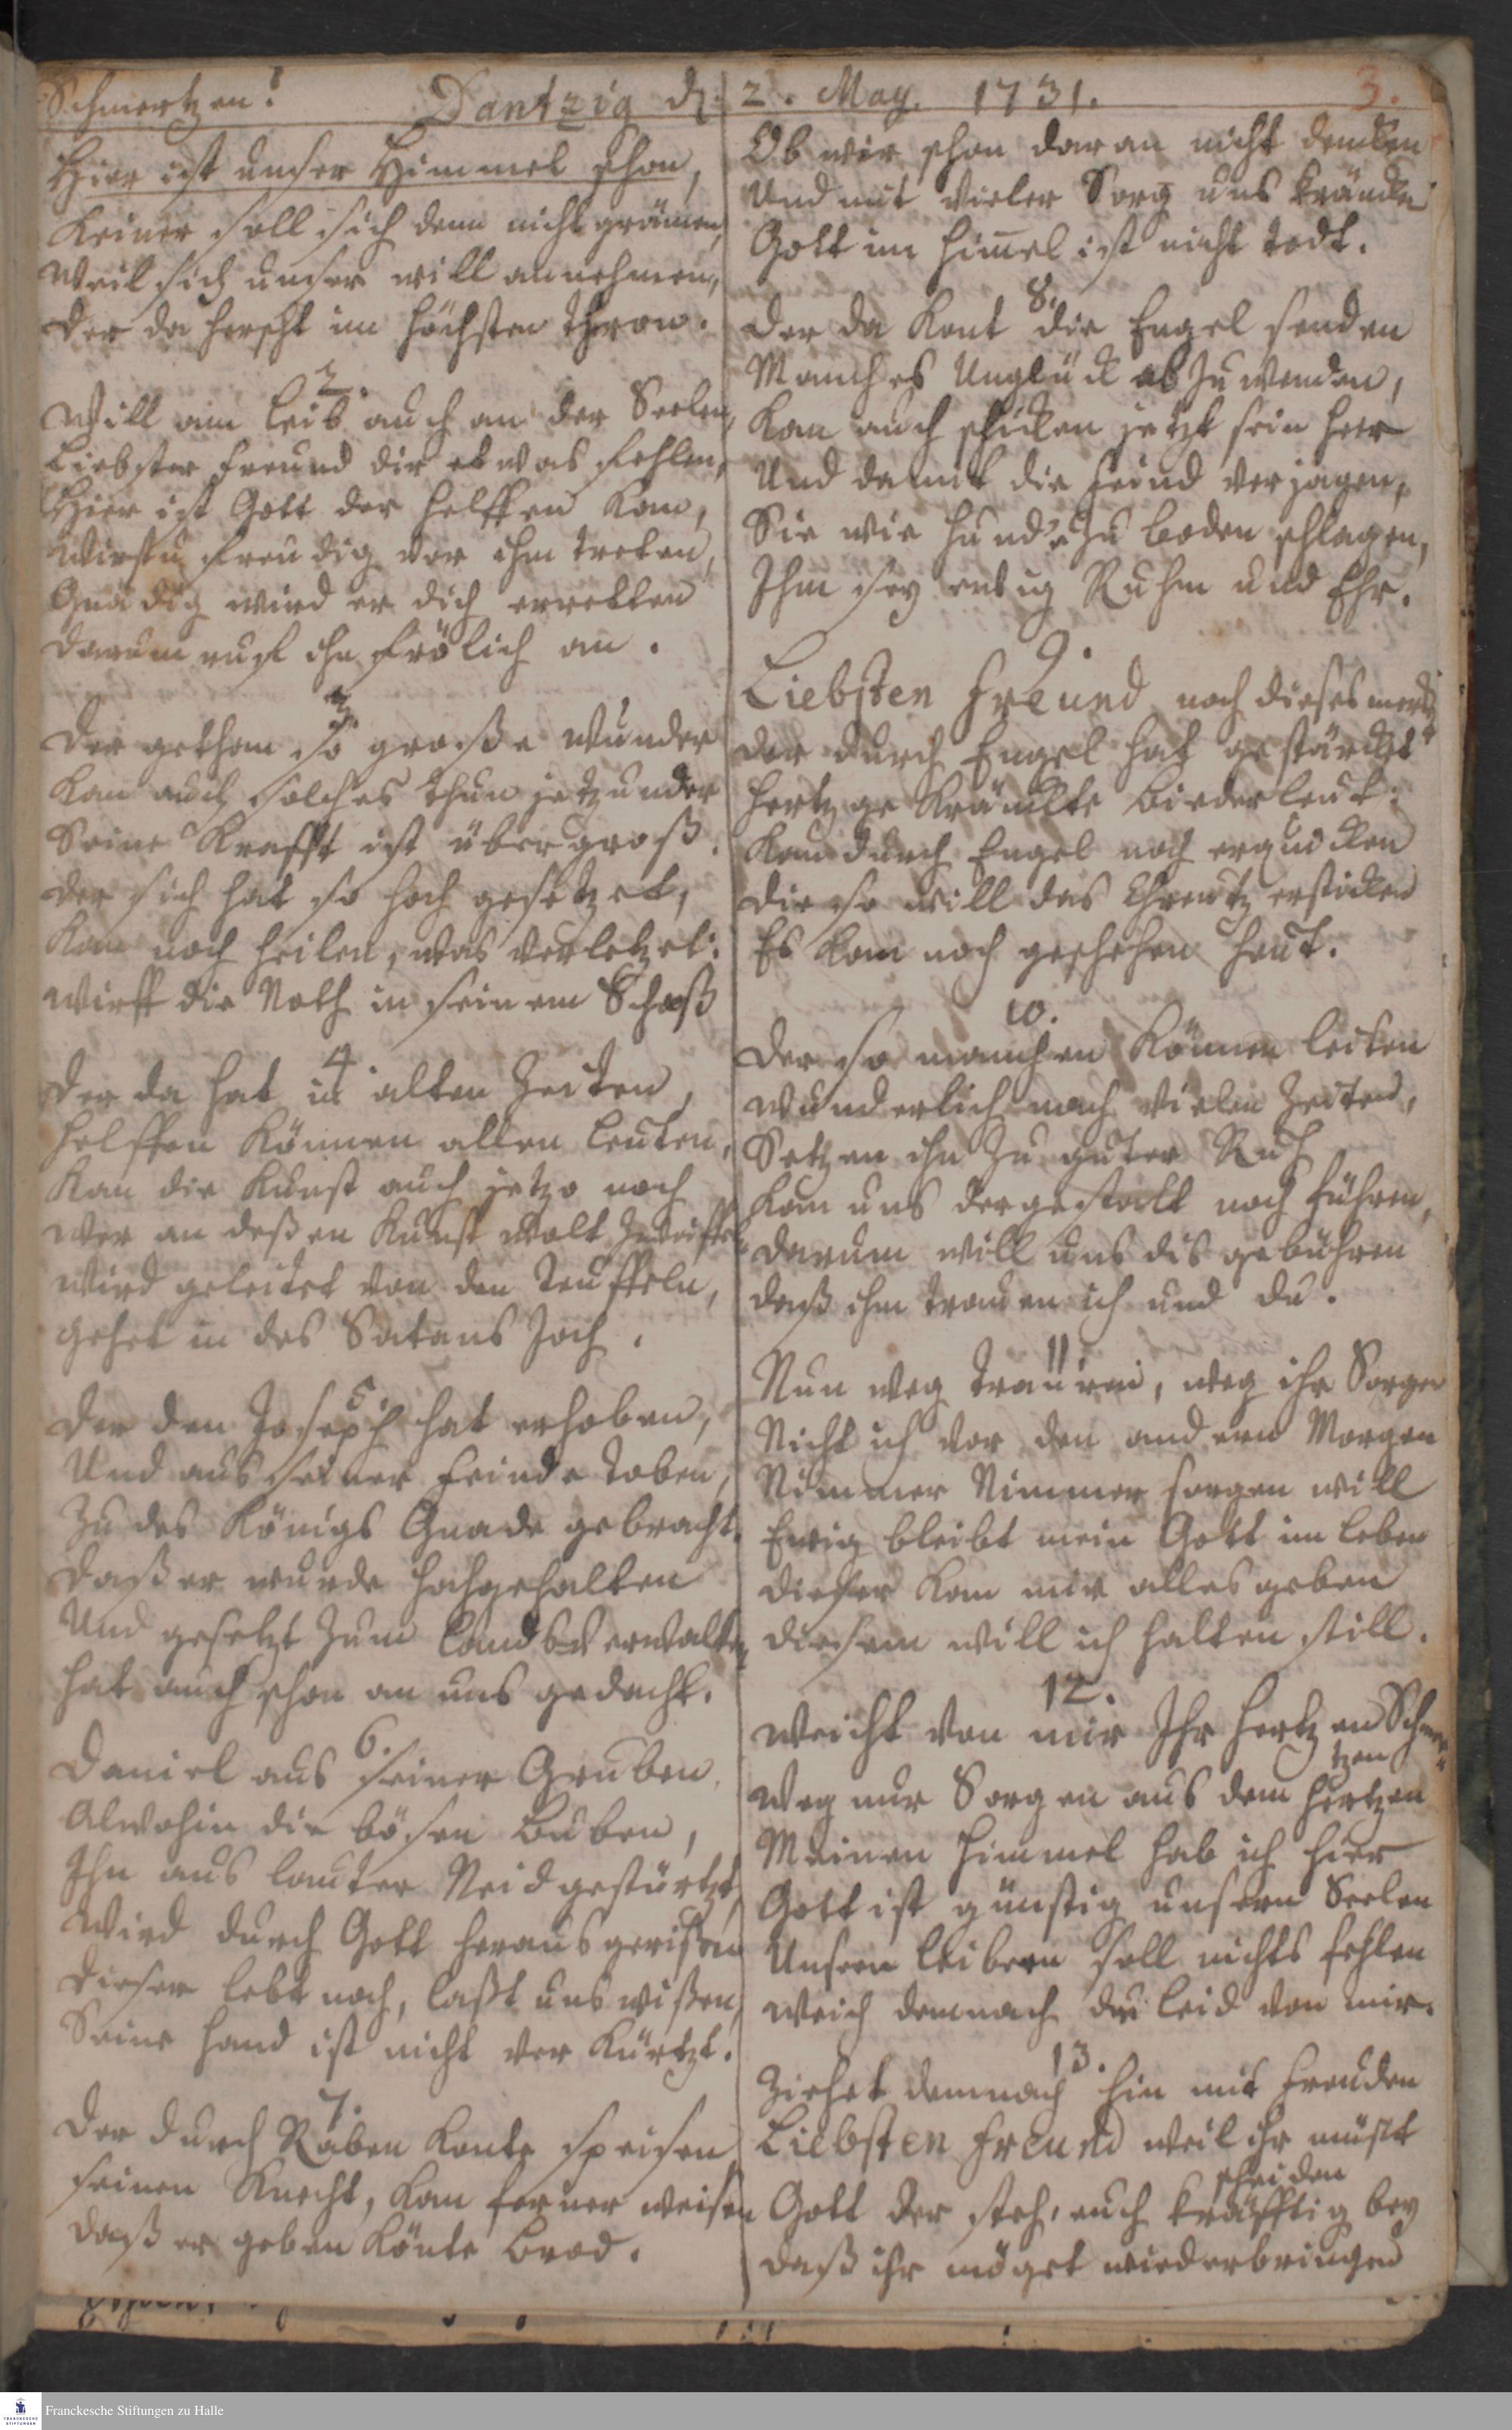 Schmertzen! Dantzig d. 2. May. 1731. 3.
Hier ist unser Himmel schon,
Keiner soll sich denn nicht grämen,
Weil sich unser will annehmen,
Der da herscht im höchsten Thron.
2.
Will am Leib auch an der Seelen,
Liebster Freund dir etwas fehlen,
Hier ist Gott der helffen kan,
Wirstu freudig vor ihm treten,
Gnädig wird er dich erretten
Darum ruf ihn frölich an.
3.
Der gethan so große Wunder
Kan auch solches thun jetzunder
Seine Krafft ist übergroß.
Der sich hat so hoch gesetzet,
Kan noch heilen, was verletzet:
Wirff die Noth in seinem Schoß
4.
Der da hat in alten Zeiten,
Helffen können allen Leuten,
Kan die Kunst auch jetzo noch
Wer an deßen Kunst wolt zweiffeln
Wird geleitet von den Teuffeln,
Gehet in des Satans Joch.
5.
Der den Joseph hat erhoben,
Und aus seiner Feinde Toben,
Zu des Königs Gnade gebracht.
Daß er wurde hochgehalten
Und gesetzt zum Landsverwalter
Hat auch schon an uns gedacht.
6.
Daniel aus seiner Gruben,
Alwohin die bösen Buben,
Ihn aus lauter Neid gestürtzt,
Wird durch Gott herausgerißen
Dieser lebt noch, laßt uns wißen,
Seine Hand ist nicht verkürtzt.
7.
Der durch Raben konte speisen,
Seinen Knecht, kan ferner weisen
Daß er geben könte Brod.
Ob wir schon daran nicht dencken
Und mit vieler Sorg uns kräncken
Gott im Himel ist nicht todt.
8.
Der da kont die Engel senden
Manches Unglück abzuwenden,
Kan auch schicken jetzt sein Heer
Und damit die Feind verjagen,
Sie wie Hunde zu Boden schlagen,
Ihm sey ewig Ruhm und Ehr.
9.
Liebsten Freund noch dieses merckt
Der durch Engel hat gestärckt
Hertzgekränckte Biederleut:
Kan durch Engel noch erquicken
Die so will das Creutz ersticken
Es kan noch geschehen heut.
10.
Der so manchen können leiten
Wunderlich nach vielen Zeiten,
Setzen ihn zu guter Ruh
Kan uns dergestalt noch führen,
Darum will uns dis gebühren
Daß ihm trauen ich und du.
11
Nun weg Trauren, weg ihr Sorgen
Nicht ich vor den andern Morgen
Nimmer Nimmer sorgen will
Ewig bleibt mein Gott im Leben
Dieser kan mir alles geben
Diesem will ich halten still.
12.
Weicht von mir Ihr Hertzen Schmer-
tzen
Weg nur Sorgen aus dem Hertzen
Meinen Himmel hab ich hier
Gott ist günstig unsern Seelen
Unsern Leibern soll nichts fehlen
Weich demnach du Leid von mir.
13.
Ziehet demnach hin mit Freuden
Liebsten Freund weil ihr müst
scheiden
Gott der steh, euch kräfftig bey
Daß ihr möget wiederbringen
Franckesche Stiftungen zu Halle